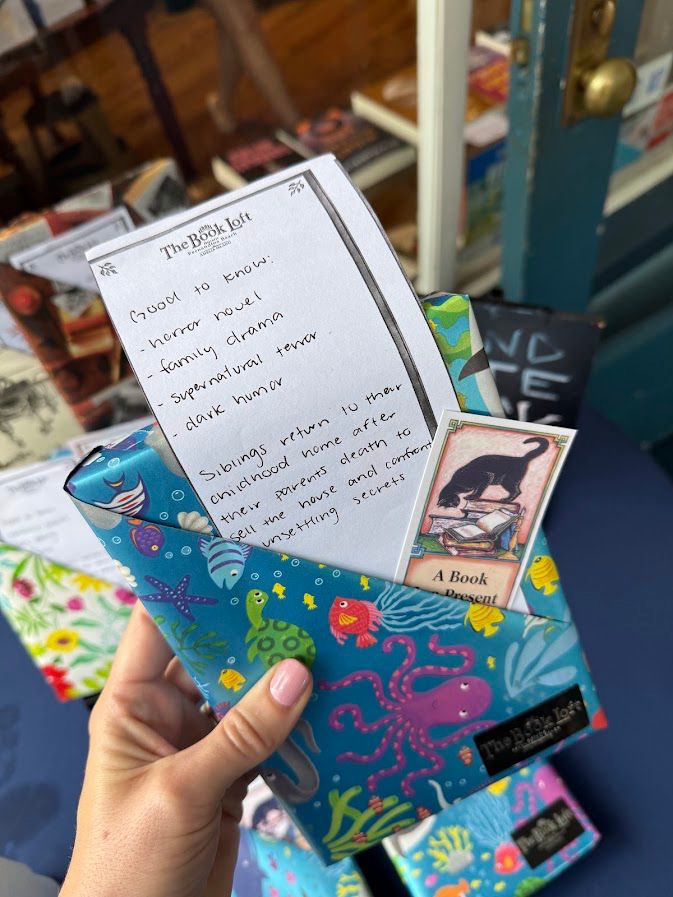 The Book Loft
Fernandina Beach
Good to know:
- horror novel
- family drama
- supernatural terror
- dark humor
Siblings return to their
childhood home after
their parents death to
sell the house and confront
unsettling secrets
A Book
Present
The Book Loft
The Book Loft